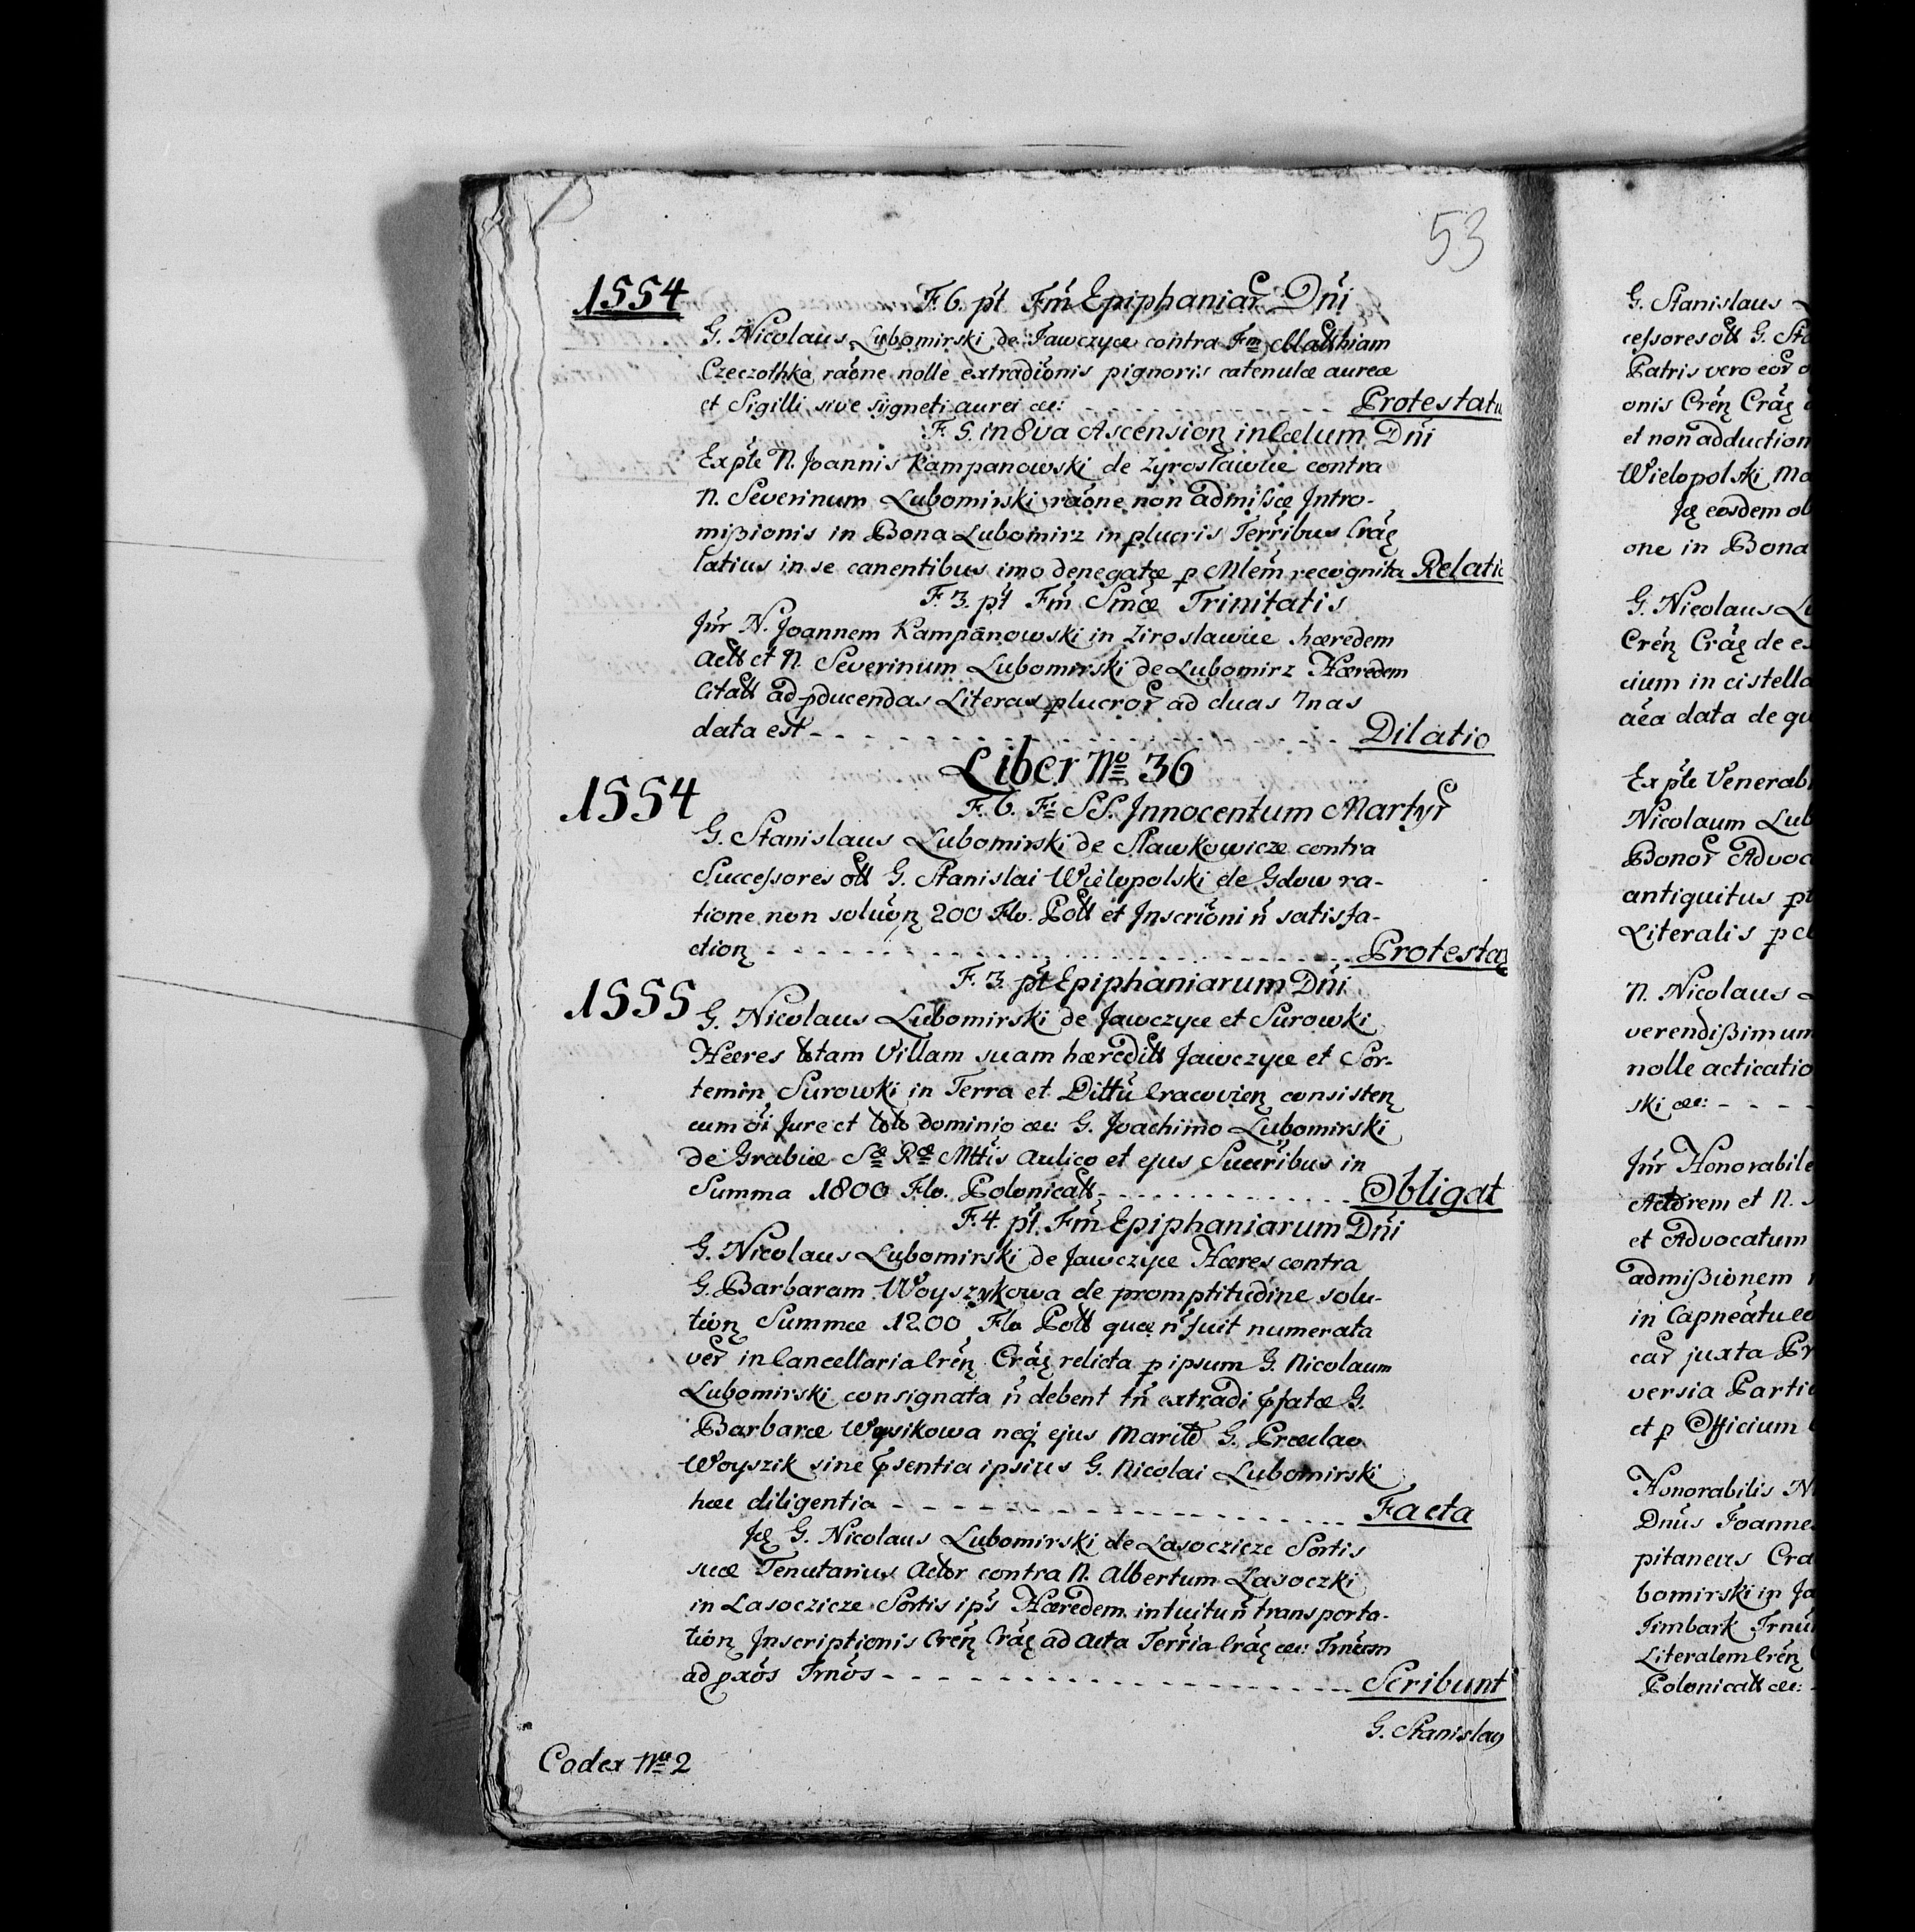 53
1554
F. 6. pt Fm Epiphaniar Dni
G. Nicolaus Lubomirski de Jawczyce contra Fm Matthiam
Czeczothka raone nolle extradionis pignoris catenulæ aureæ
et Sigilli sive sygneti aurei &c: Protestatu
F. 5. in 8va Ascension in Cœlum Dni
Ex pte N. Joannis Kampanowski de Zyrosławice contra
N. Severinum Lubomirski raone non admissæ Intro-
mißionis in Bona Lubomirz in plucris Terribus Crac
latius in se canentibus imo denegatæ p Mlem recognita Relatio
F. 3. pt Fm Smæ Trinitatis
Jnr N. Joannem Kampanowski in Ziroslawice hæredem
Act et N. Severinum Lubomirski de Lubomirz Hæredem
Citatt ad pducendas Literas plucror ad duas 7nas
data est Dilatio
Liber No 36
1554
F. 6. Fi SS. Innocentum Martyr
G. Stanislaus Lubomirski de Sławkowicze contra
Successores ott G. Stanislai Wielopolski de Gdow ra-
tione non soluon 200 Flo. Poll et Inscrioni n satisfa-
ction Protesta
F. 3. pt Epiphaniarum Dni
1555
G. Nicolaus Lubomirski de Jawczyce et Surowki
Hæres totam Villam suam hæreditt Jawczyce et Sor-
tem in Surowki in Terra et Dittu Cracovien consisten
cum oi Jure et toto dominio &c: G. Joachimo Lubomirski
de Grabie Sæ Ræ Mttis Aulico et ejus Succribus in
Summa 1800 Flo. Polonicatt Obligat
F. 4. pt Fm Epiphaniarum Dni
G. Nicolaus Lubomirski de Jawczyce Hæres contra
G. Barbaram Woyszykowa de promptitudine solu-
tion Summæ 1200 Flo Poll quæ n fuit numerata
ver in Cancellaria Cren Crac relicta p ipsum G. Nicolaum
Lubomirski consignata n debent tn extradi pfatæ G.
Barbaræ Woysikowa neq ejus Marito G. Præclao
Woyszik sine psentia ipsius G. Nicolai Lubomirski
hæc diligentia Facta
Jq G. Nicolaus Lubomirski de Lasoczicze Sortis
suæ Tenutarius Actor contra N. Albertum Lasoczki
in Lasoczicze Sortis ips Hæredem intuitu n transporta-
tion Inscriptionis Cren Crac ad Acta Terria Crac &c: Trnum
ad pxos Trnos Scribunt
G. Stanislaq
Codex No 2
G. Stanislaus
cessores ott G. Sta
Patris vero eor
onis Cren Crac
et non adduction
Wielopolski
Jq eosdem
one in Bona
G. Nicolaus Lu
Cren Crac de
cium in cistella
aca data de
Ex pte Venerab
Nicolaum Lub
Bonor Advoc
antiquitus
Literalis p
N. Nicolaus
verendißimum
nolle acticatio
ski &c:
Jnr Honorabile
Actorem et N.
et Advocatum
admißionem
in Capneatu
car juxta
versia
et p Officium
Honorabilis
Dnus Joannes
pitaneus Cra
bomirski in
Timbark
Literalem Cren
Polonicatt &c: